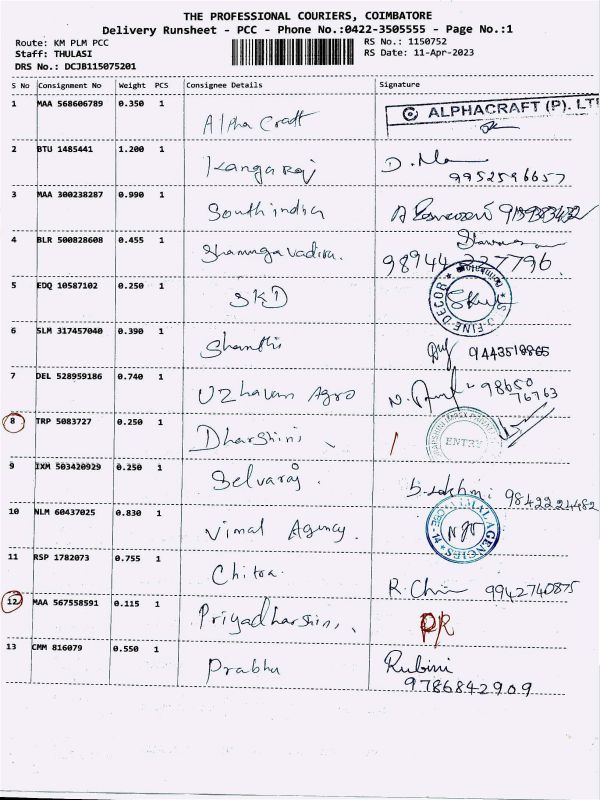 THE PROFESSIONAL COURIERS, COIMBATORE
Delivery Runsheet - PCC - Phone No.:0422-3505555 - Page No.:1
Route: KM PLM PCC RS No.: 1150752
Staff: THULASI RS Date: 11-Apr-2023
DRS No.: DCJB115075201
S No Consignment No Weight PCS Consignee Details Signature
1 MAA 568606789 0.350 1 Alpha Craft ALPHACRAFT (P). LT
2 BTU 1485441 1.200 1 Kangaraj D. 9952596657
3 MAA 300238287 0.990 1 South india
4 BLR 500828608 0.455 1 Shanmugavadivu. 98944 227796
5 EDQ 10587102 0.250 1 SKD FINE DECOR
6 SLM 317457040 0.390 1 Shanthi
7 DEL 528959186 0.740 1 Uzhavan Agro N. 98650
76763
8 TRP 5083727 0.250 1 Dharshini ENTRY
9 IXM 503420929 0.250 1 Selvaraj. 9842224482
10 NLM 60437025 0.830 1 Vimal Agency. VIMAL AGENCIES CBE-14
11 RSP 1782073 0.755 1 Chitra. R. 9942740875
12 MAA 567558591 0.115 1 Priyadharshini PR
13 CMM 816079 0.550 1 Prabhu Rubini
9786842909